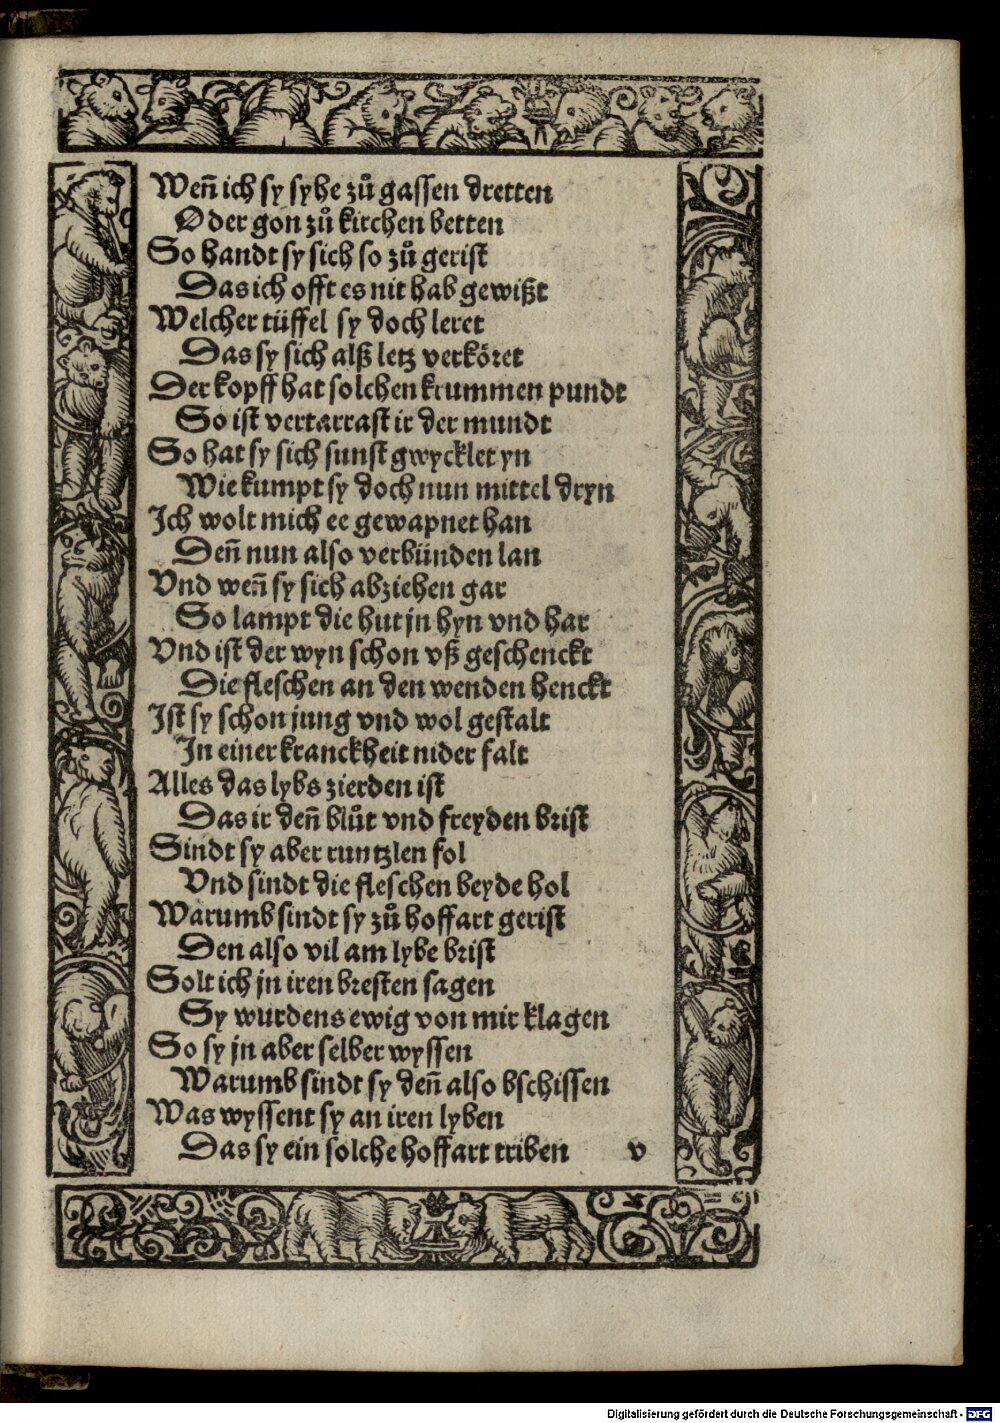 Weñ ich sy syhe zů gassen dretten
Oder gon zů kirchen betten
So handt sy sich so zů gerist
Das ich offt es nit hab gewißt
Welcher tüffel sy doch leret
Das sy sich alß letz verköret
Der kopff hat solchen krummen pundt
So ist vertarrast ir der mundt
So hat sy sich sunst gwycklet yn
Wie kumpt sy doch nun mittel dryn
Ich wolt mich ee gewapnet han
Deñ nun also verbünden lan
Vnd weñ sy sich abziehen gar
So lampt die hut jn hyn vnd har
Vnd ist der wyn schon vß geschenckt
Die fleschen an den wenden henckt
Ist sy schon jung vnd wol gestalt
In einer kranckheit nider falt
Alles das lybs zierden ist
Das ir deñ blůt vnd freyden brist
Sindt sy aber runtzlen fol
Vnd sindt die fleschen beyde hol
Warumb sindt sy zů hoffart gerist
Den also vil am lybe brist
Solt ich jn iren bresten sagen
Sy wurdens ewig von mir klagen
So sy jn aber selber wyssen
Warumb sindt sy deñ also bschissen
Was wyssent sy an iren lyben
Das sy ein solche hoffart triben v
Digitalisierung gefördert durch die Deutsche Forschungsgemeinschaft - DFG